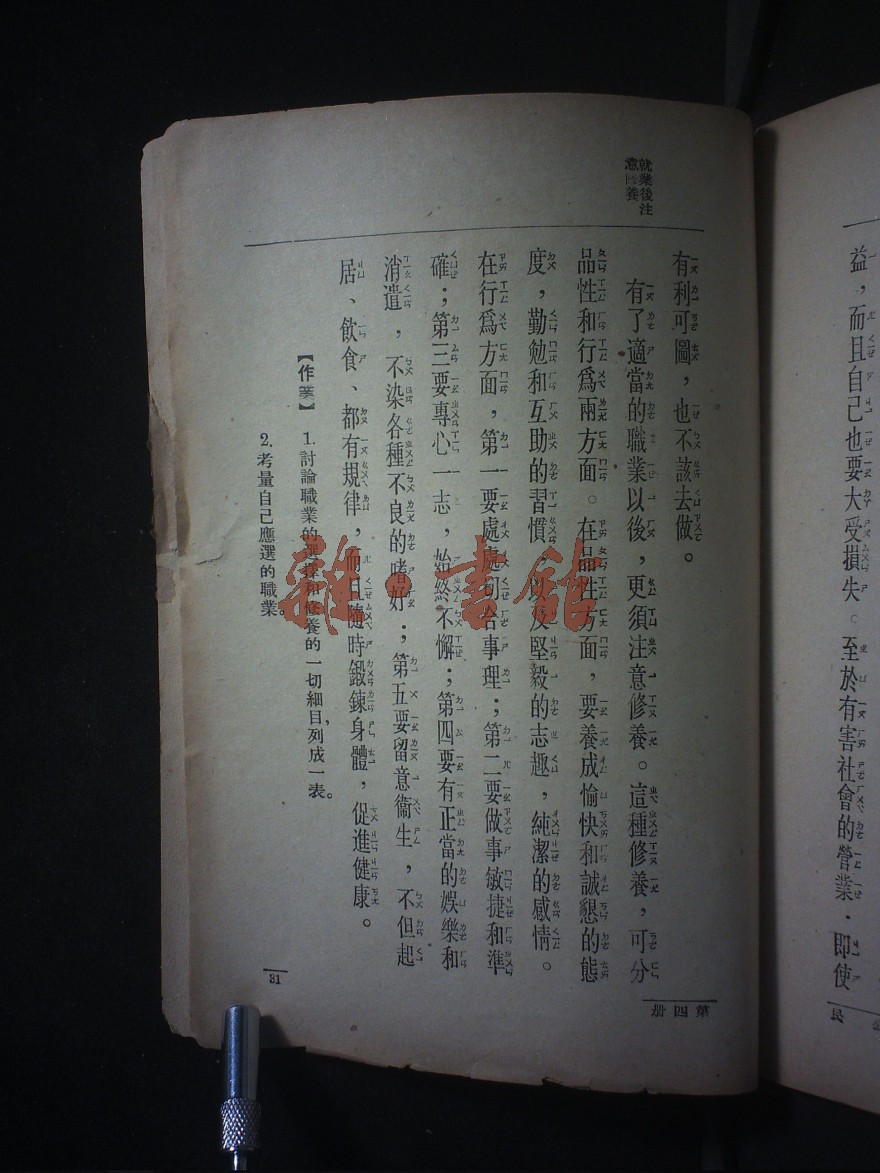 益，而且自己也要大受損失。至於有害社會的營業，即使
民
就業後注
意修養
有利可圖，也不該去做。
有了適當的職業以後，更須注意修養。這種修養，可分
品性和行爲兩方面。在品性方面，要養成愉快和誠懇的態
度，勤勉和互助的習慣，以及堅毅的志趣，純潔的感情。
在行爲方面，第一要處處切合事理；第二要做事敏捷和準
確；第三要專心一志，始終不懈；第四要有正當的娛樂和
消遣，不染各種不良的嗜好；第五要留意衞生，不但起
居、飲食、都有規律，而且隨時鍛鍊身體，促進健康。
【作業】 1.討論職業的選擇和修養的一切細目，列成一表。
2.考量自己應選的職業。
第四册
31
雜·書館